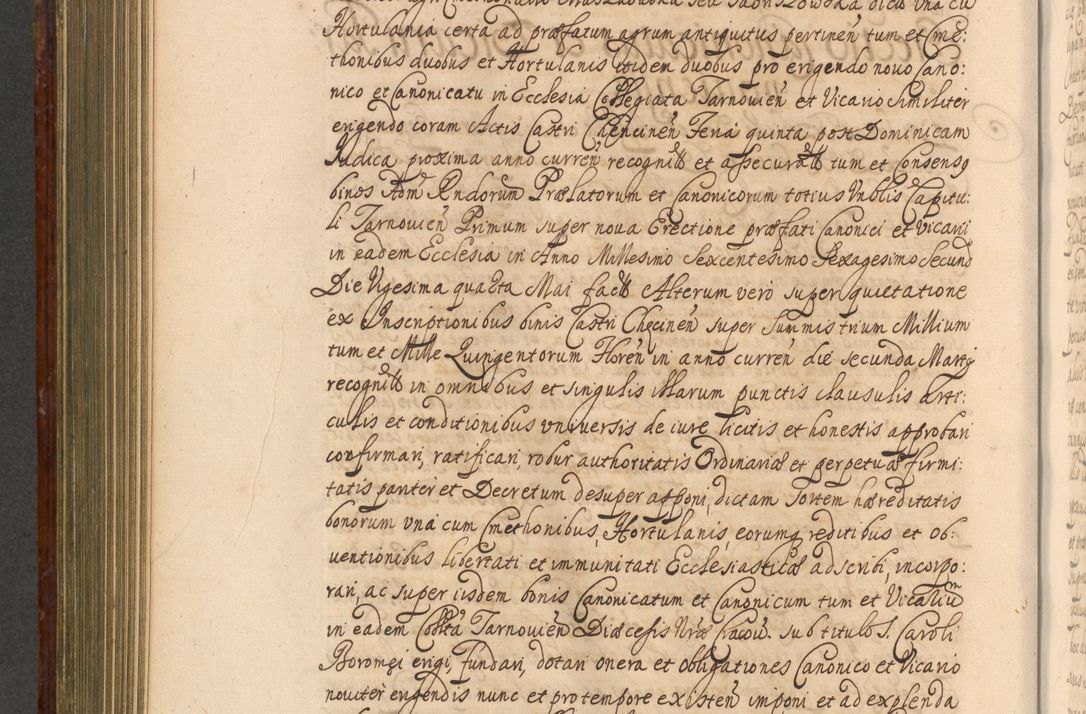 Hortulania certa ad præfatum agrum antiquitus pertinen̄ tum et Cme:
thonibus duobus et Hortulanis itidem duobus pro erigendo novo Cano:
nico et Canonicatu in Ecclesia Collegiata Tarnovien̄ et Vicario Similiter
erigendo coram Actis Castri Chencinen̄ Feria quinta post Dominicam
Iudica proxima anno curren̄ recognitos et assecuratos tum et Consensq
binos Adm Rndorum Prælatorum et Canonicorum totius Vnblis Capitu:
li Tarnovien̄ Primum super nova Erectione præfati Canonici et Vicarii
in eadem Ecclesia in Anno Millesimo Sexcentesimo Sexagesimo Secund
Die Vigesima quarta Maii factos Alterum vero super quietatione
ex Inscriptionibus binis Castri Chęcinen̄ super Summis trium Millium
tum et Mille Quingentorum Floren̄ in anno curren̄ die secunda Martij
recognitos in omnibus et singulis illarum punctis clausulis arti:
culis et conditionibus vniversis de iure licitis et honestis approbari
confirmari, ratificari, robur authoritatis Ordinariæ et perpetuæ firmi:
tatis pariter et Decretum desuper apponi, dictam Sortem hæreditatis
bonorum vna cum Cmethonibus, Hortulanis, eorumq reditibus et ob:
ventionibus libertati et immunitati Ecclesiasticæ adscribi, incorpo:
rari, ac super iisdem bonis Canonicatum et Canonicum tum et Vicariū
in eadem Collta Tarnovien̄ Diæcesis Nræ Cracov. sub titulo S. Caroli
Boromęi erigi, fundari, dotari onera et obligationes Canonico et Vicario
noviter erigendis nunc et pro tempore existen̄ imponi et ad explenda